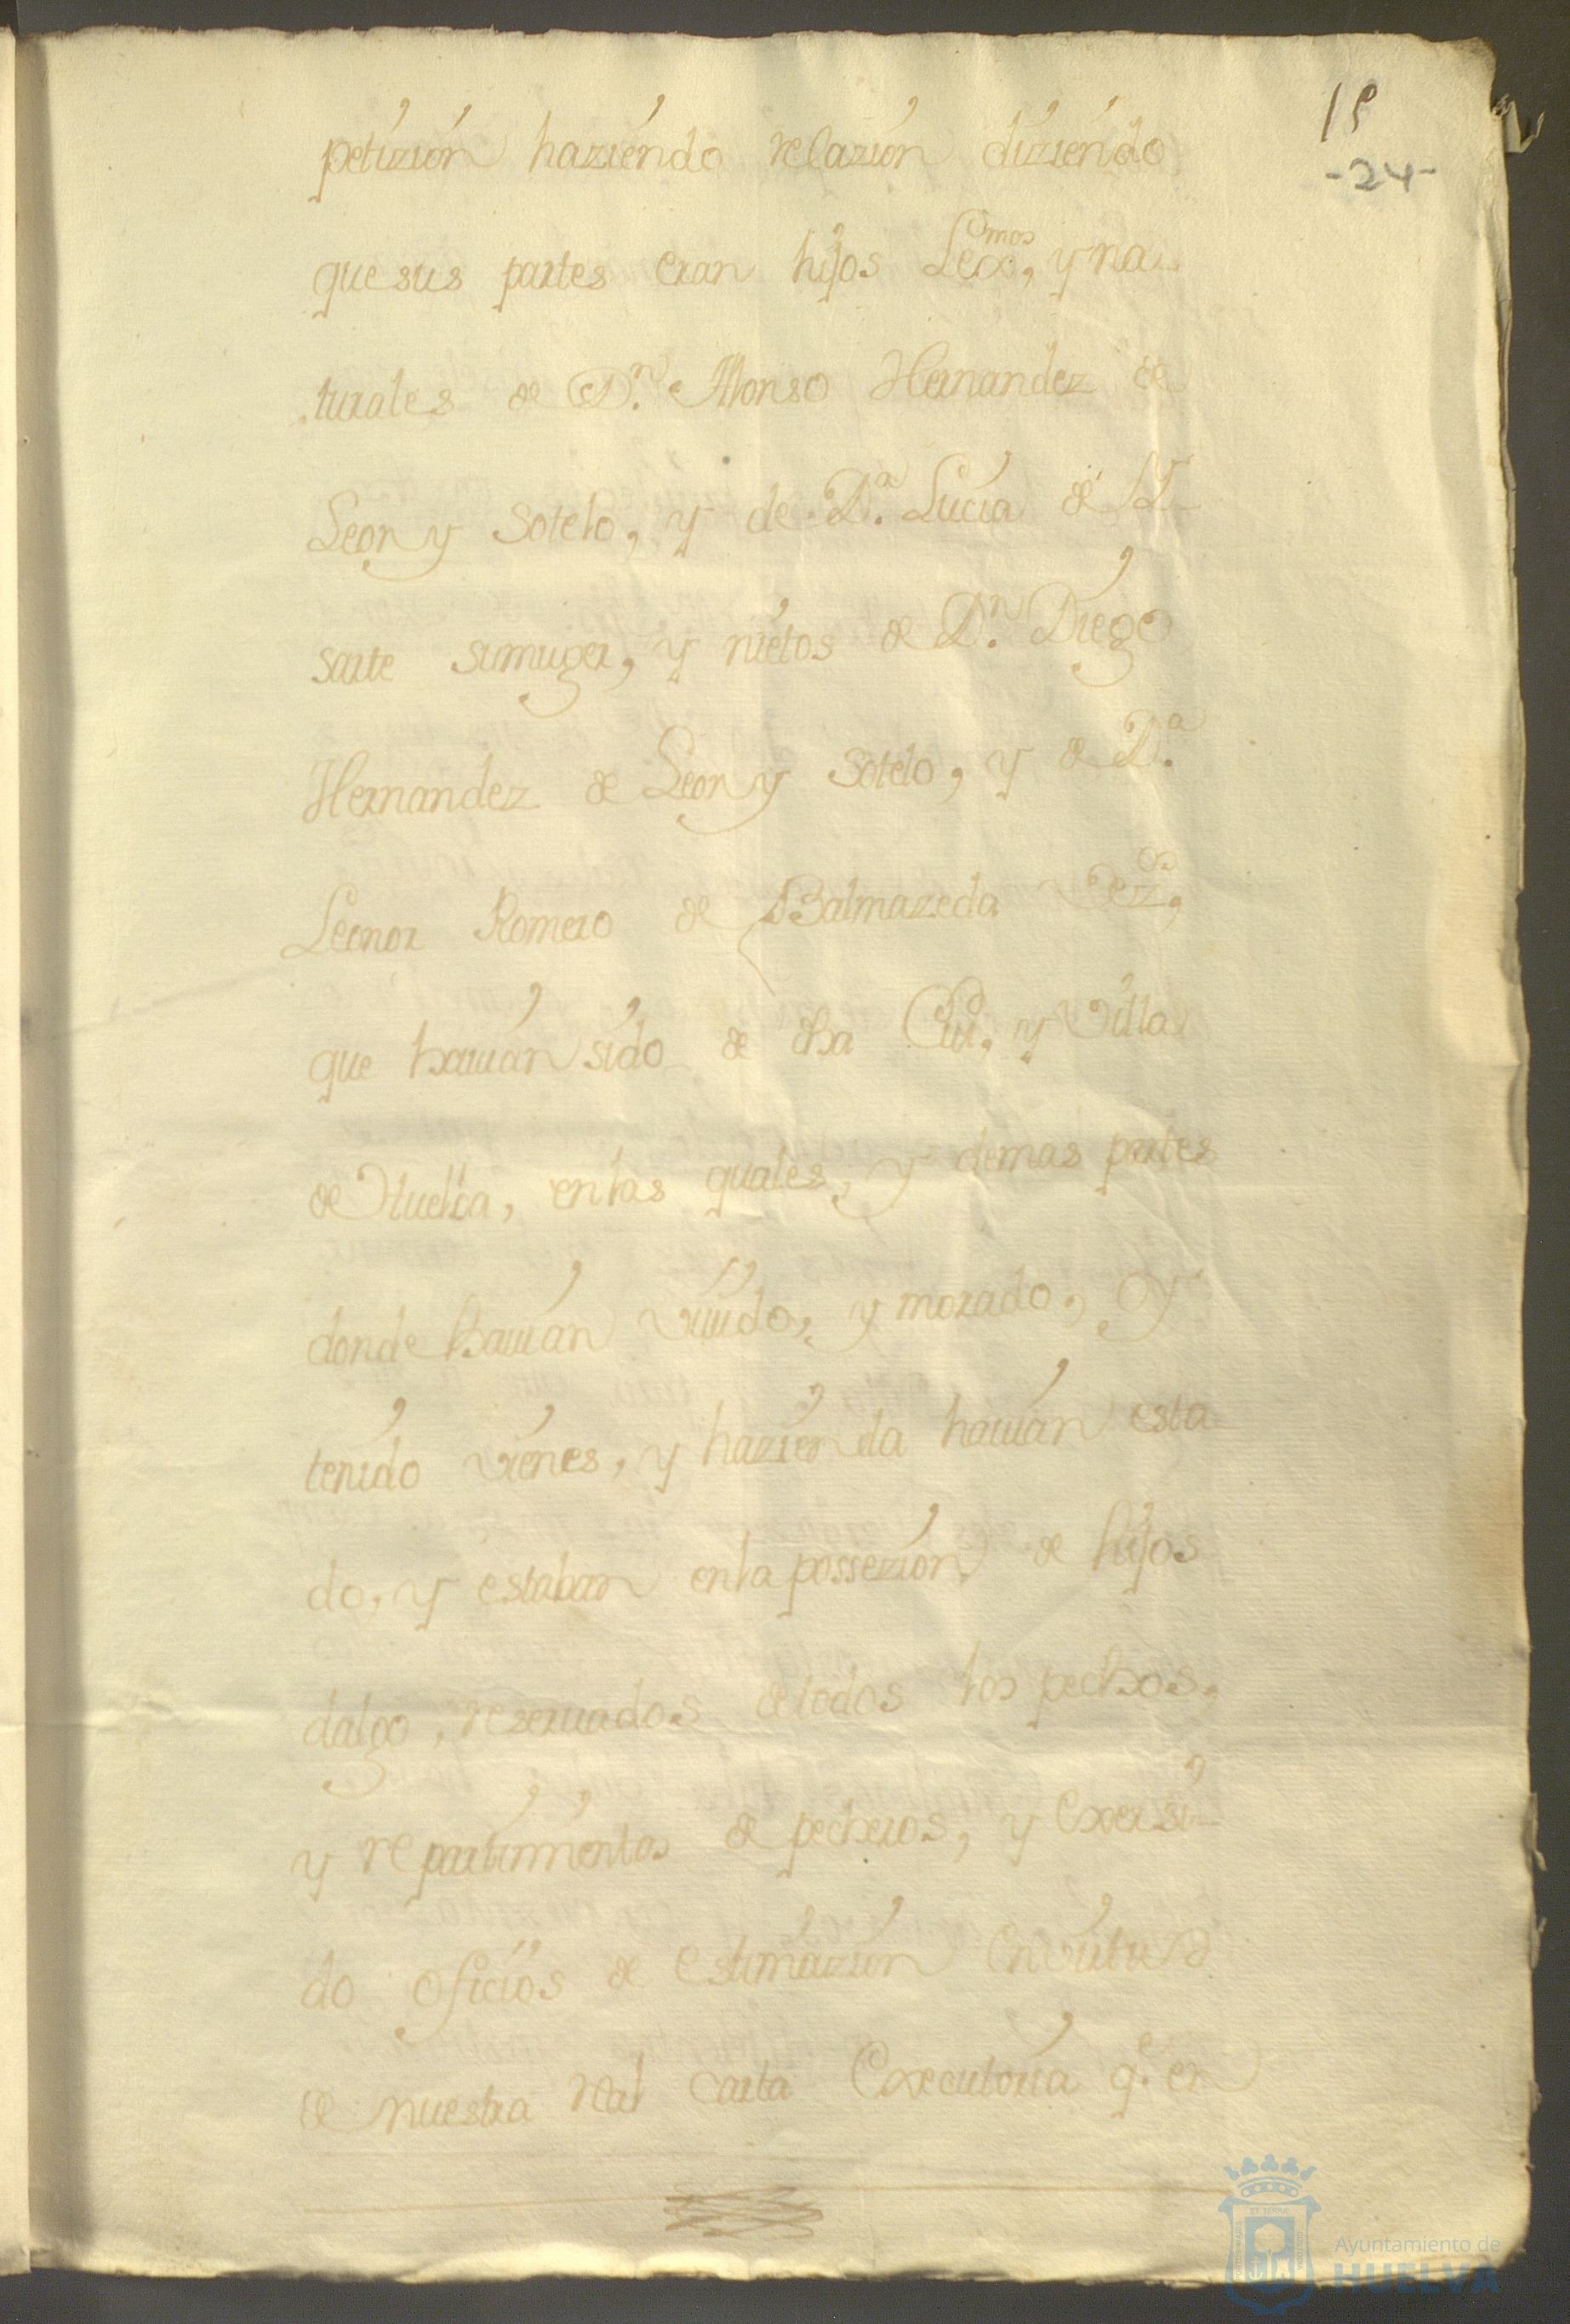 15
-24-
petizion haziendo relazion diziendo
que sus partes eran hijos Lexmos, y na-
turales de Dn. Alonso Hernandez de
Leon y Sotelo, y de Da. Lucia de
sarte su muger, y nietos de Dn. Diego
Hernandez de Leon y Sotelo, y de Da.
Leonor Romero de Balmazeda
que hauian sido de dha Ciu, y Villa
de Huelva, en las quales, y demas partes
donde hauian viuido, y morado, y
tenido vienes, y hazienda hauian esta
do, y estaban en la possezion de hijos
dalgo, reseruados de todos los pechos,
y repartimientos de pecheros, y exersi-
do oficios de estimazion en virtud
de nuestra real carta executoria qe. en
Ayuntamiento de
HUELVA